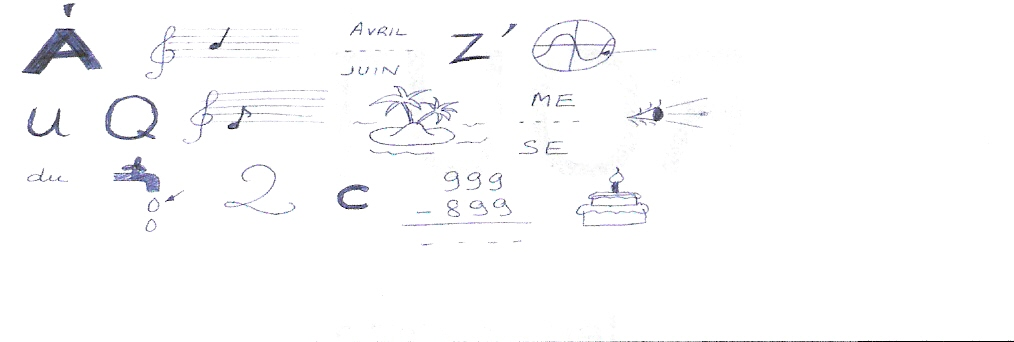 Á AVRIL Z'
JUIN
u Q ME
SE
du 2 C 999
- 899